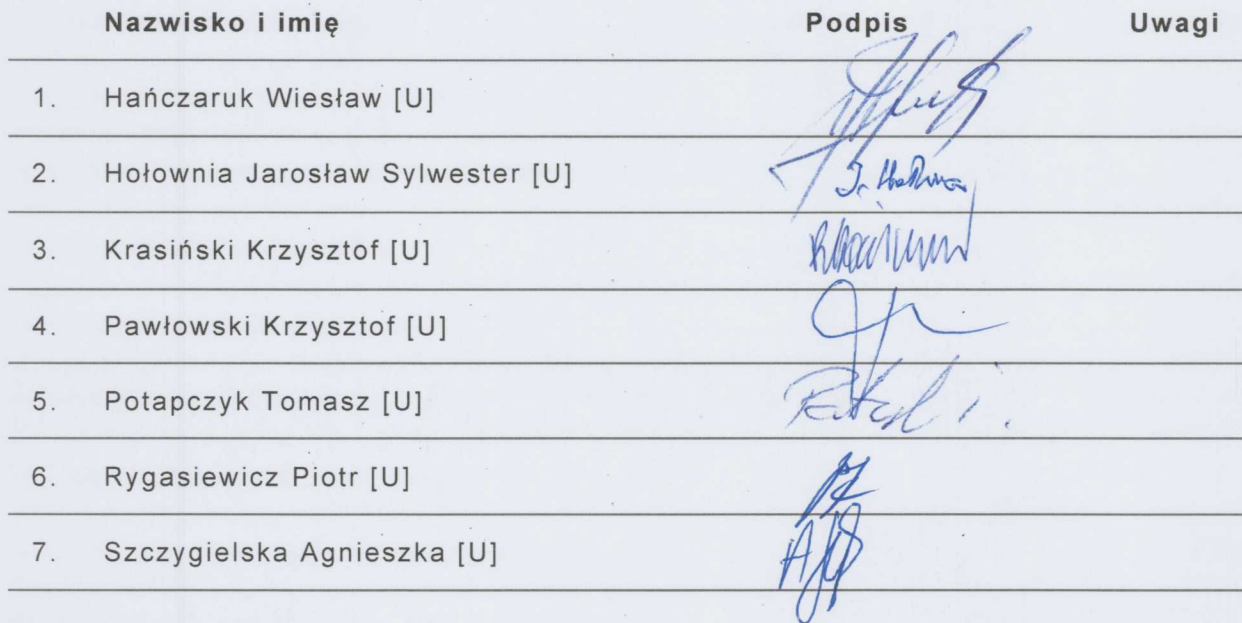 Nazwisko i imię Podpis Uwagi
1. Hańczaruk Wiesław [U]
2. Hołownia Jarosław Sylwester [U]
3. Krasiński Krzysztof [U]
4. Pawłowski Krzysztof [U]
5. Potapczyk Tomasz [U]
6. Rygasiewicz Piotr [U]
7. Szczygielska Agnieszka [U]